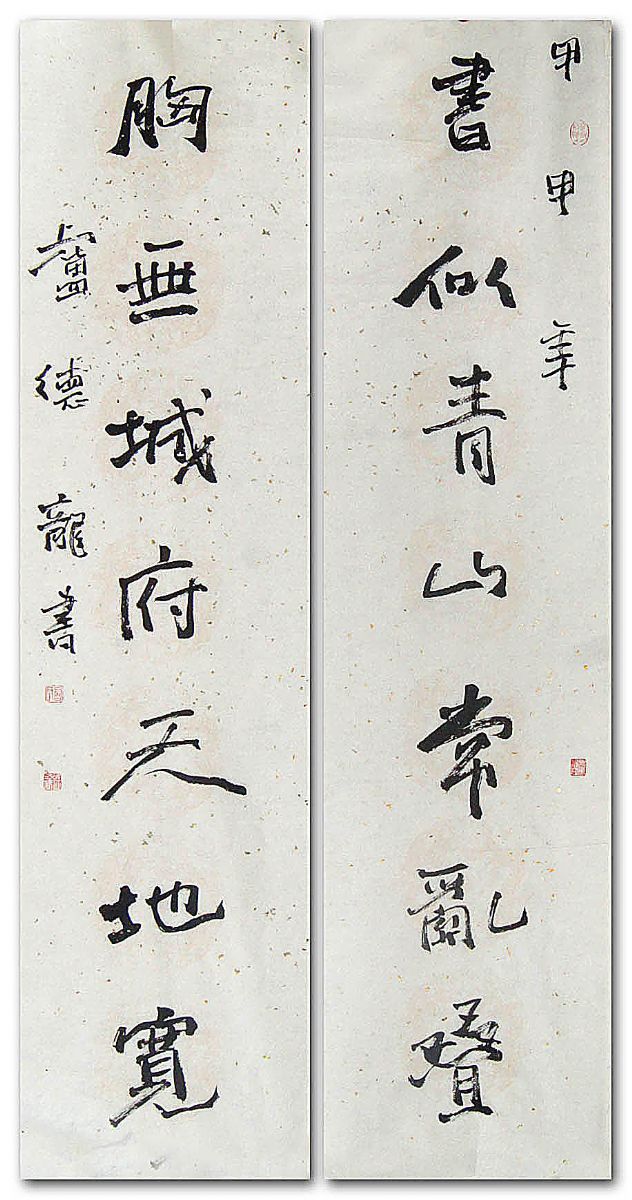 甲申年
書似青山常亂叠
胸無城府天地寬
盧德龍書